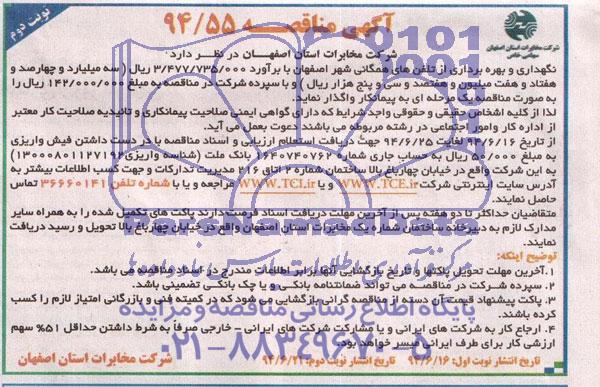 نوبت دوم
آگهی مناقصه ۹۴/۵۵
شرکت مخابرات استان اصفهان
سهامی خاص
شرکت مخابرات استان اصفهان در نظر دارد:
نگهداری و بهره برداری از تلفن های همگانی شهر اصفهان با برآورد ۳/۴۷۷/۷۳۵/۰۰۰ ریال ( سه میلیارد و چهارصد و
هفتاد و هفت میلیون و هفتصد و سی و پنج هزار ریال ) و با سپرده شرکت در مناقصه به مبلغ ۱۴۲/۰۰۰/۰۰۰ ریال را
به صورت مناقصه یک مرحله ای به پیمانکار واگذار نماید.
لذا از کلیه اشخاص حقیقی و حقوقی واجد شرایط که دارای گواهی ایمنی صلاحیت پیمانکاری و تائیدیه صلاحیت کار معتبر
از اداره کار وامور اجتماعی در رشته مربوطه می باشند دعوت بعمل می آید.
از تاریخ ۹۴/۶/۱۶ لغایت ۹۴/۶/۲۵ جهت دریافت استعلام ارزیابی و اسناد مناقصه با در دست داشتن فیش واریزی
به مبلغ ۵۰/۰۰۰ ریال به حساب جاری شماره بانک ملت (شناسه واریزی
به این شرکت واقع در خیابان چهارباغ بالا ساختمان شماره ۲ اتاق ۲۱۶ مدیریت تدارکات و جهت کسب اطلاعات بیشتر به
آدرس سایت اینترنتی شرکت WWW.TCE.ir و یا WWW.TCI.ir مراجعه و یا با شماره تلفن ۳۶۶۶۰۱۴۱ تماس
حاصل نمایند.
متقاضیان حداکثر تا دو هفته پس از آخرین مهلت دریافت اسناد فرصت دارند پاکت های تکمیل شده را به همراه سایر
مدارک لازم به دبیرخانه ساختمان شماره یک مخابرات استان اصفهان واقع در خیابان چهارباغ بالا تحویل و رسید دریافت
نمایند.
توضیح اینکه:
۱. آخرین مهلت تحویل پاکتها و تاریخ بازگشایی آنها برابر اطلاعات مندرج در اسناد مناقصه می باشد.
۲. سپرده شرکت در مناقصه می تواند ضمانتنامه بانکی و یا چک بانکی تضمینی باشد.
۳. پاکت پیشنهاد قیمت آن دسته از مناقصه گرانی بازگشایی می شود که در کمیته فنی و بازرگانی امتیاز لازم را کسب
کرده باشند.
۴. ارجاع کار به شرکت های ایرانی و یا مشارکت شرکت های ایرانی - خارجی صرفاً به شرط داشتن حداقل ۵۱% سهم
ارزشی کار برای طرف ایرانی میسر خواهد بود.
تاریخ انتشار نوبت اول: ۹۴/۶/۱۶ تاریخ انتشار نوبت دوم: ۹۴/۶/۲۲
شرکت مخابرات استان اصفهان
پایگاه اطلاع رسانی مناقصه و مزایده
۰۲۱-۸۸۳۴۹۶۷۰-۵